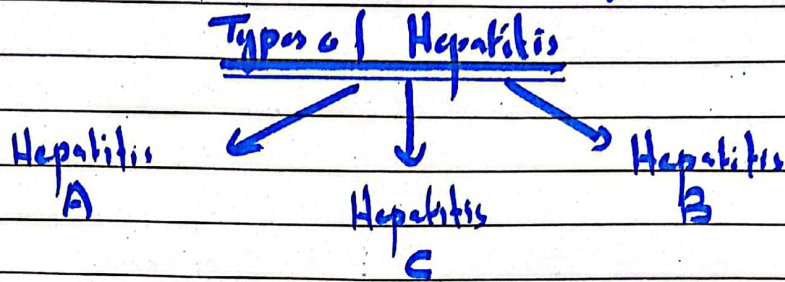 Types of Hepatitis
Hepatitis
A
Hepatitis
C
Hepatitis
B